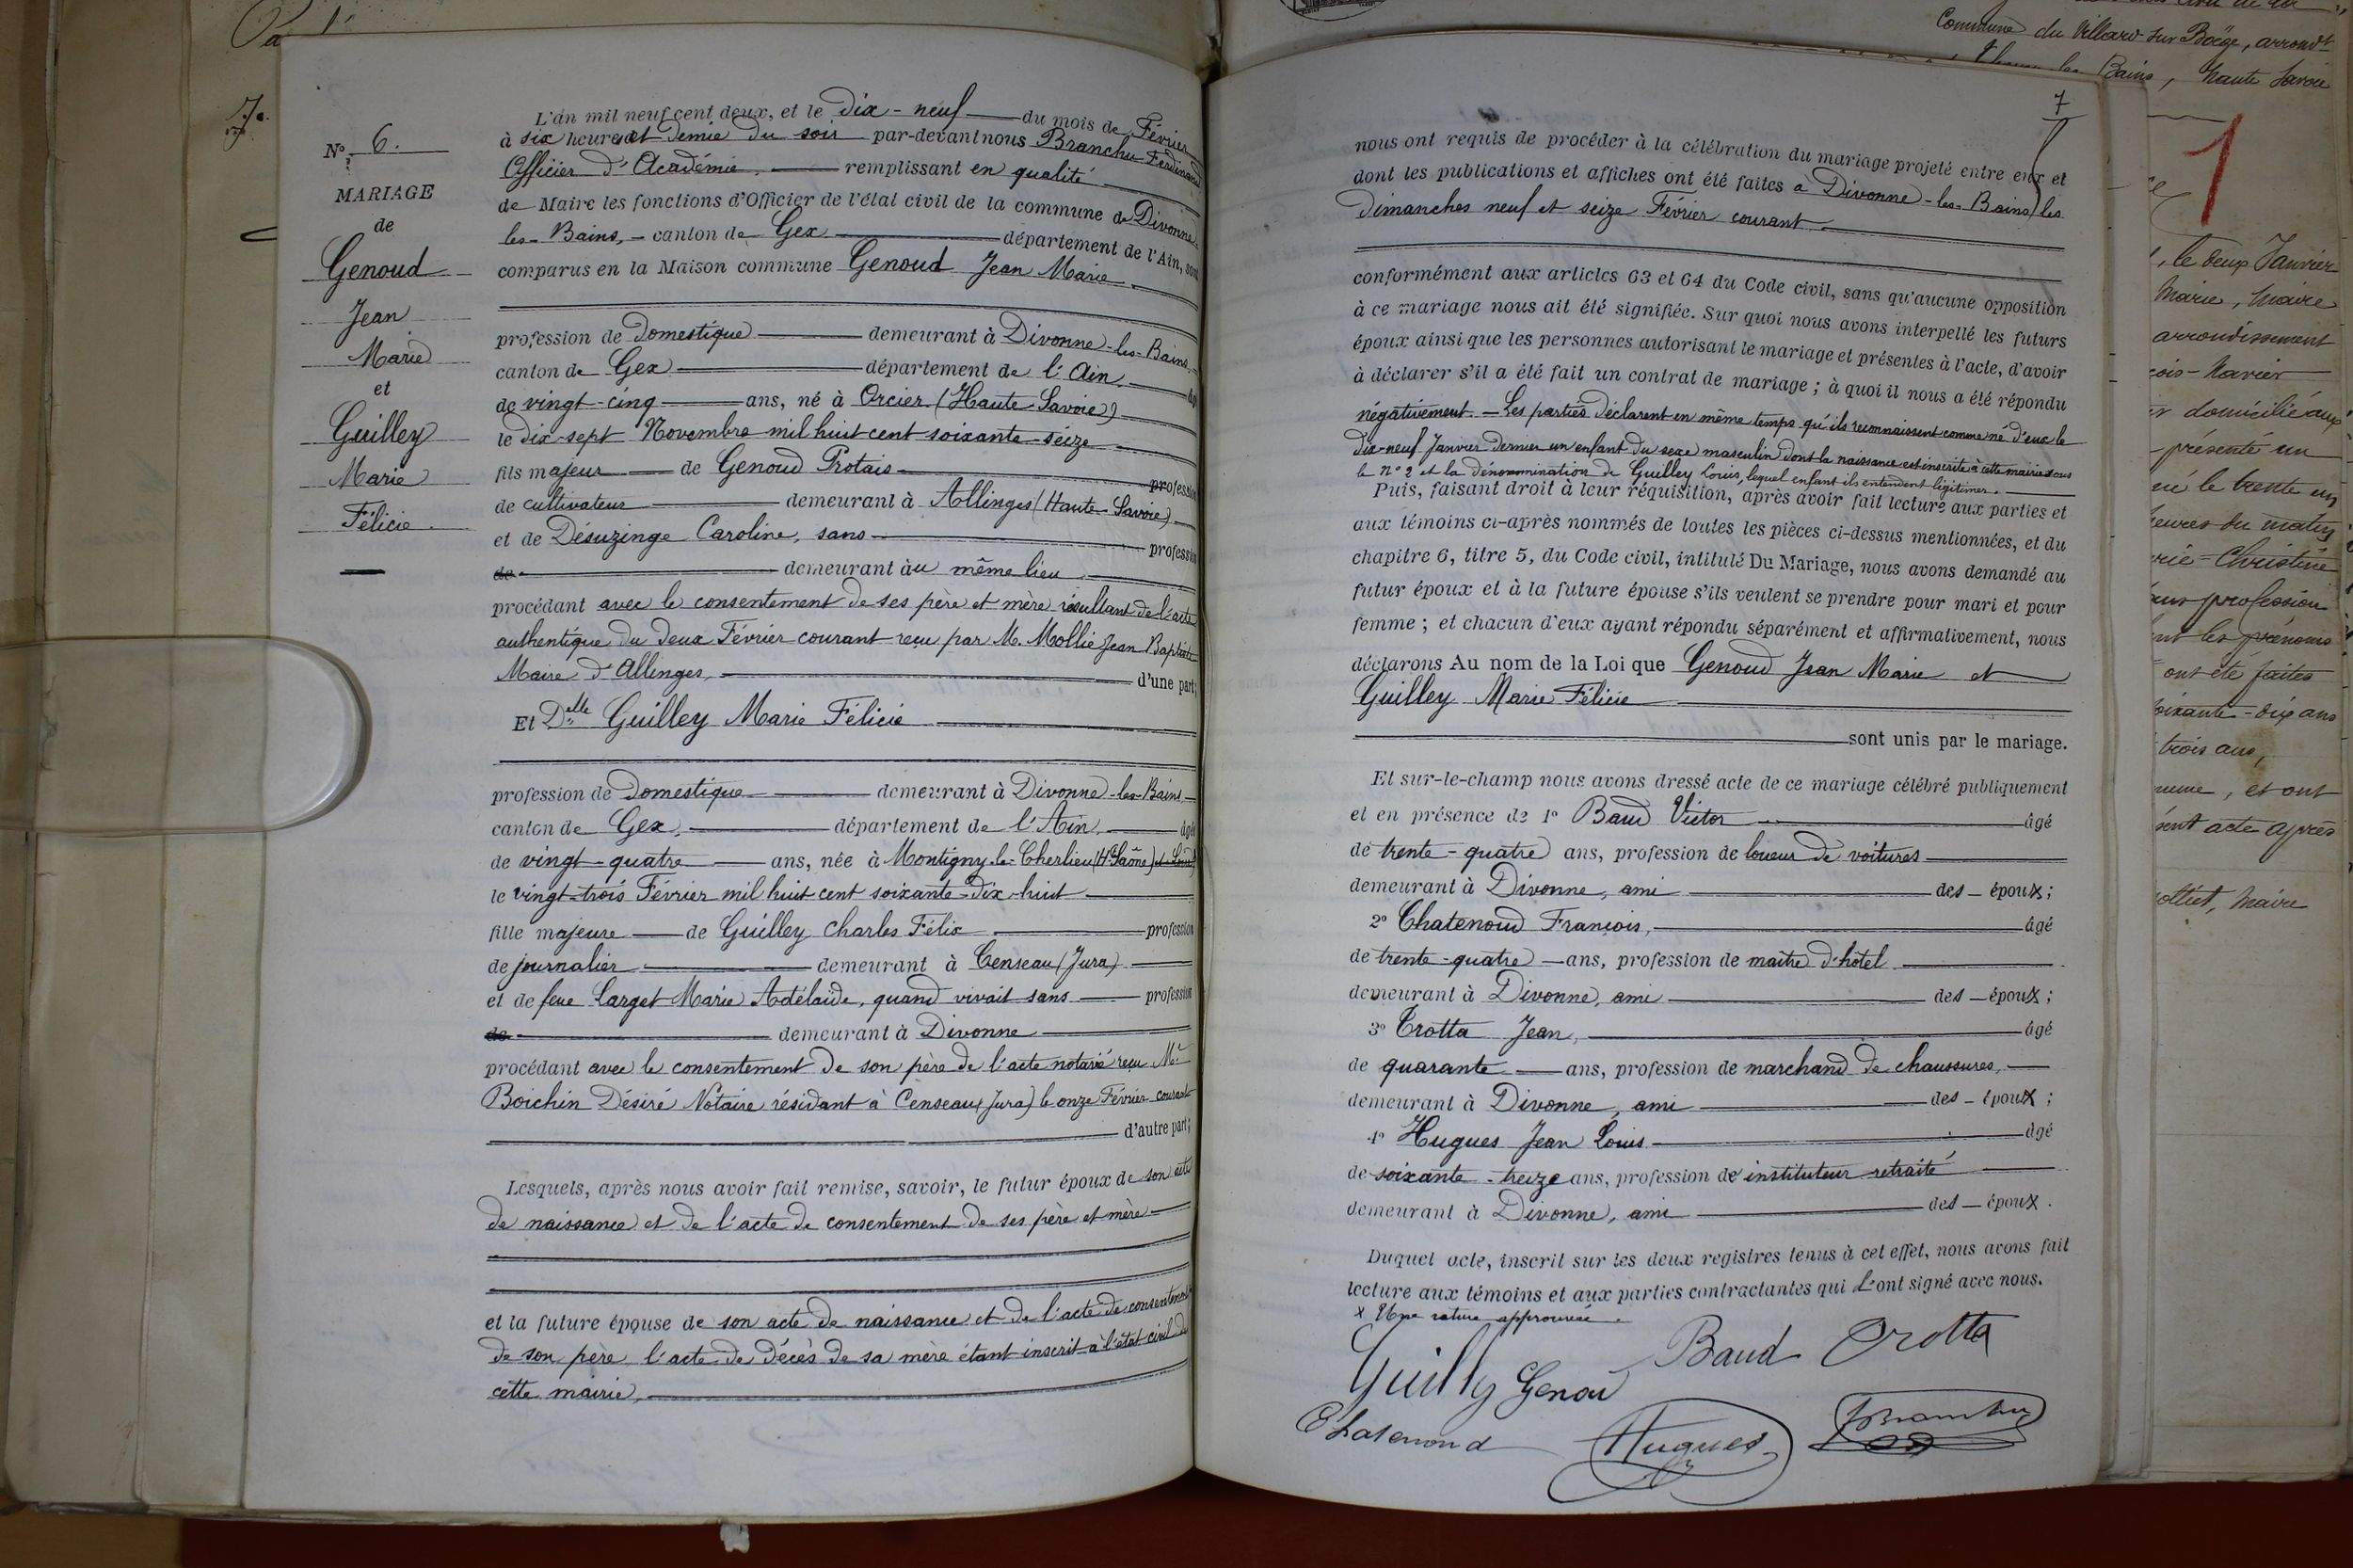 N° 6.
MARIAGE
de
Genoud
Jean
Marie
et
Guilley
Marie
Félicie
L'an mil neuf cent deux, et le Dix-neuf du mois de Février
à six heures et Demie du soir par-devant nous Branchu Ferdinand
Officier d'Académie, remplissant en qualité
de Maire les fonctions d'Officier de l'état civil de la commune de Divonne-
les-Bains, canton de Gex département de l'Ain, sont
comparus en la Maison commune Genoud Jean Marie
profession de Domestique demeurant à Divonne-les-Bains
canton de Gex département de l'Ain, âgé
de vingt-cinq ans, né à Orcier (Haute Savoie)
le Dix-sept Novembre mil huit cent soixante-seize
fils majeur de Genoud Protais profession
de cultivateur demeurant à Allinges (Haute-Savoie)
et de Désuzinge Caroline, sans profession
de demeurant au même lieu
procédant avec le consentement de ses père et mère résultant de l'acte
authentique du deux Février courant reçu par M. Mollie Jean Baptiste
Maire d'Allinges, d'une part;
Et Delle Guilley Marie Félicie
profession de Domestique demeurant à Divonne-les-Bains
canton de Gex, département de l'Ain, âgée
de vingt-quatre ans, née à Montigny-les-Cherlieu (Hte Saône) et Loire)
le vingt-trois Février mil huit cent soixante-dix-huit
fille majeure de Guilley Charles Félix profession
de journalier demeurant à Censeau (Jura)
et de feue Larget Marie Adélaïde, quand vivait sans profession
de demeurant à Divonne
procédant avec le consentement de son père de l'acte notarié reçu Me
Boichin Désiré Notaire résidant à Censeau (Jura) le onze Février courant
d'autre part;
Lesquels, après nous avoir fait remise, savoir, le futur époux de son acte
de naissance et de l'acte de consentement de ses père et mère
et la future épouse de son acte de naissance et de l'acte de consentement
de son père, l'acte de décès de sa mère étant inscrit à l'état civil de
cette mairie,
7
nous ont requis de procéder à la célébration du mariage projeté entre eux et
dont les publications et affiches ont été faites à Divonne-les-Bains les
Dimanches neuf et seize Février courant
conformément aux articles 63 et 64 du Code civil, sans qu'aucune opposition
à ce mariage nous ait été signifiée. Sur quoi nous avons interpellé les futurs
époux ainsi que les personnes autorisant le mariage et présentes à l'acte, d'avoir
à déclarer s'il a été fait un contrat de mariage ; à quoi il nous a été répondu
négativement. Les parties déclarent en même temps qu'ils reconnaissent comme né d'eux le
dix-neuf Janvier dernier un enfant du sexe masculin dont la naissance est inscrite à cette mairie sous
le n° 2 et la dénommination de Guilley Louis, lequel enfant ils entendent légitimer.
Puis, faisant droit à leur réquisition, après avoir fait lecture aux parties et
aux témoins ci-après nommés de toutes les pièces ci-dessus mentionnées, et du
chapitre 6, titre 5, du Code civil, intitulé Du Mariage, nous avons demandé au
futur époux et à la future épouse s'ils veulent se prendre pour mari et pour
femme ; et chacun d'eux ayant répondu séparément et affirmativement, nous
déclarons Au nom de la Loi que Genoud Jean Marie et
Guilley Marie Félicie
sont unis par le mariage.
Et sur-le-champ nous avons dressé acte de ce mariage célébré publiquement
et en présence de 1° Baud Victor âgé
de trente-quatre ans, profession de loueur de voitures
demeurant à Divonne, ami des époux;
2° Chatenoud François, âgé
de trente-quatre ans, profession de maître d'hôtel
demeurant à Divonne, ami des époux;
3° Trotta Jean, âgé
de quarante ans, profession de marchand de chaussures,
demeurant à Divonne, ami des époux;
4° Hugues Jean Louis âgé
de soixante-treize ans, profession de instituteur retraité
demeurant à Divonne, ami des époux.
Duquel acte, inscrit sur les deux registres tenus à cet effet, nous avons fait
lecture aux témoins et aux parties contractantes qui l'ont signé avec nous.
x Une rature approuvée.
Guilly Genou Baud Trotta
Chatenoud Hugues Branchu
Commune du Villard sur Boëge, arrondt
Bains, haute Savoie
1
, le deux Janvier
Marie, Maire
arrondissement
çois-Xavier
domicilié aux
présenté un
le trente un
heures du matin
rie-Christine
profession
les prénoms
ont été faites
soixante-dix ans
trois ans,
et ont
acte après
, Maire